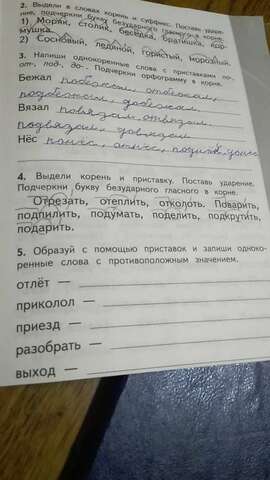 2. Выдели в словах корень и суффикс. Поставь ударе-
ние, подчеркни букву безударного гласного в корне.
1) Моряк, столик, беседка, братишка, кор-
мушка.
2) Сосновый, ледяной, гористый, морозный.
3. Напиши однокоренные слова с приставками по-,
от-, под-, до-. Подчеркни орфограмму в корне.
Бежал побежал, отбежал,
подбежал, добежал
Вязал повязал, отвязал,
подвязал, довязал
Нёс понёс, отнёс, донёс
4. Выдели корень и приставку. Поставь ударение.
Подчеркни букву безударного гласного в корне.
Отрезать, отеплить, отколоть. Поварить,
подпилить, подумать, поделить, подкрутить,
подарить.
5. Образуй с помощью приставок и запиши одноко-
ренные слова с противоположным значением.
отлёт —
приколол —
приезд —
разобрать —
выход —